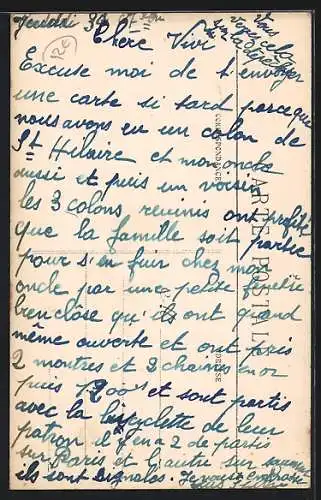 Chère Vivi
Excuse moi de t'envoyer
une carte si tard parceque
nous avons eu un colon de
St Hilaire et mon oncle
aussi et puis un voisin
les 3 colons reunis ont profité
que la famille soit partie
pour s'enfuir chez mon
oncle par une petite fenetre
bien close qu'ils ont quand
même ouverte et ont pris
2 montres et 3 chaines en or
puis 1200 et sont partis
avec la bicyclette de leur
patron il y en a 2 de partis
sur Paris et l'autre sur
ils sont signalés. Je vous embrasse
CORRESPONDANCE
CARTE POSTALE
ADRESSE
12€